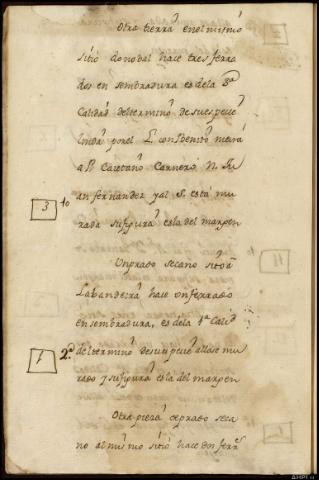 Otra tierra en el mismo
sitio do nobal hace tres ferra
dos en sembradura es de la 3ª
Calidad del termino de su espeue
linda por el L. con Benito neira
a P. Caietano Carnero N. Ju
an fernandez y al S. está mu
3 to rada su figura es la del marxen
Un prado secano sitio a
Labandeira hace un ferrado
en sembradura, es de la 1ª Calid
1 2ª del termino de su espeue allase mu
rado y su figura es la del marxen
Otra pieza de prado seca
no al mismo sitio hace dos ferrs
AHPLu